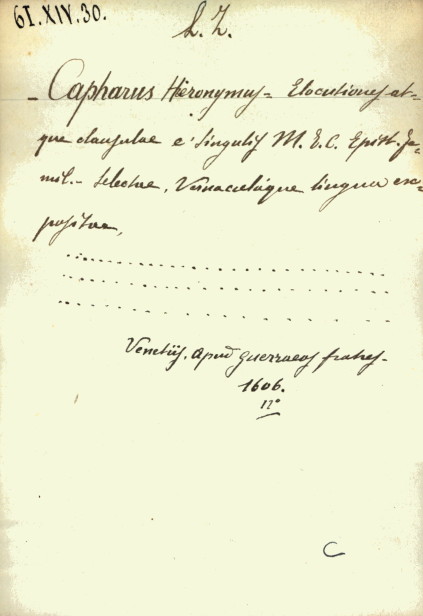 61.XIV.30.
L. Z.
- Capharus Hieronymus - Elocutiones at-
que clausulae e singulis M. T. C. Epist. fa-
mil. - Selectae, Vernaculáque lingua ex-
positae,
Venetiis. apud Guerraeos fratres -
1606.
12°
C